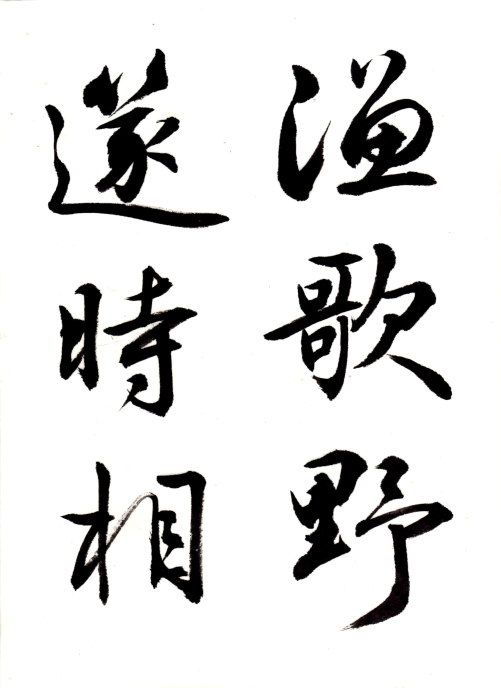 漁歌野
遂時相